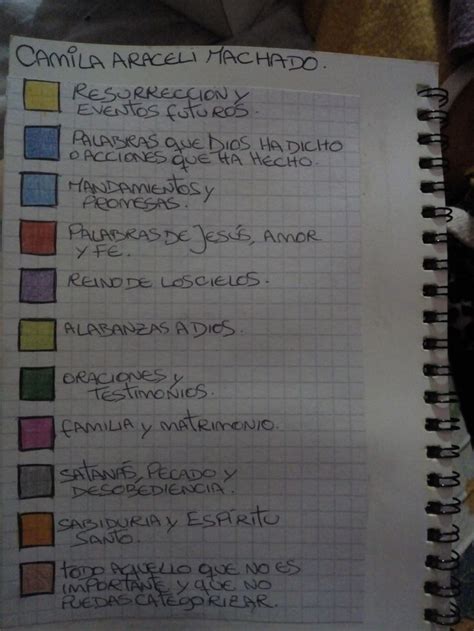 CAMILA ARACELI MACHADO.
RESURRECCION Y
EVENTOS FUTUROS.
PALABRAS QUE DIOS HA DICHO
O ACCIONES QUE HA HECHO.
MANDAMIENTOS Y
PROMESAS.
PALABRAS DE JESÚS, AMOR
Y FE.
REINO DE LOS CIELOS.
ALABANZAS A DIOS.
ORACIONES Y
TESTIMONIOS.
FAMILIA Y MATRIMONIO.
SATANÁS, PECADO Y
DESOBEDIENCIA.
SABIDURIA Y ESPÍRITU
SANTO.
TODO AQUELLO QUE NO ES
IMPORTANTE Y QUE NO
PUEDAS CATEGORIZAR.